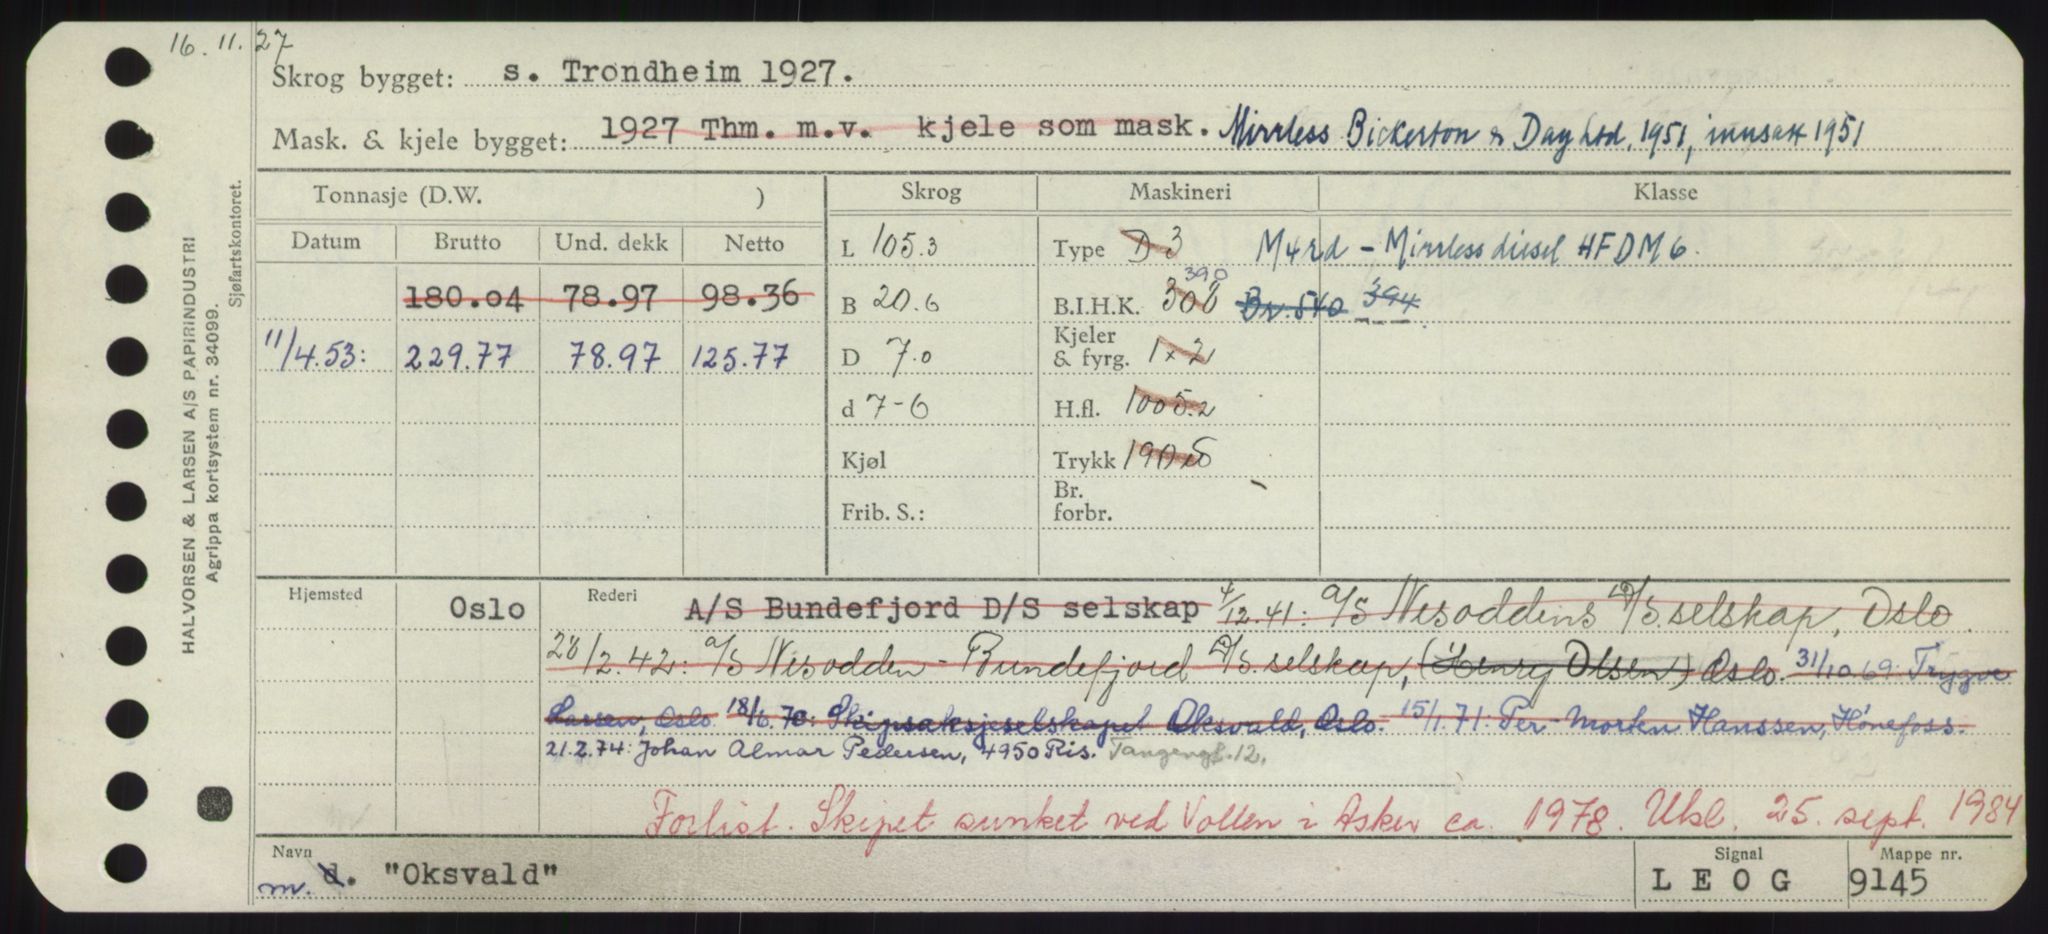 16.11.27
Skrog bygget: s. Trondheim 1927.
Mask. & kjele bygget: 1927 Thm. m.v. kjele som mask. Mirrless Bickerton & Day Ltd, 1951, innsatt 1951
Tonnasje (D.W. ) Skrog Maskineri Klasse
Datum Brutto Und. dekk Netto L 105.3 Type D 3 M4rd - Mirrless diesel HFDM6.
390
180.04 78.97 98.36 B 20.6 B.I.H.K. 300 Br. 540 394
11/4.53: 229.77 78.97 125.77 D 7.0 Kjeler & fyrg. 1x2
d 7-6 H.fl. 1005.2
Kjøl Trykk
Frib. S.: Br. forbr.
Hjemsted Oslo Rederi A/S Bundefjord D/S selskap 4/12.41: A/S Nesoddens D/S. selskap, Oslo.
28/2.42: A/S Nesodden-Bundefjord D/S. selskap, (Henry Olsen) Oslo. 31/10.69: Trygve
Larsen, Oslo. 18/6.70: Skipsaksjeselskapet Oksvald, Oslo. 15/1.71: Per-Morten Hanssen, Hönefoss.
21.2.74: Johan Almar Pedersen, 4950 Ris. Tangengt. 12.
Forlist. Skipet sunket ved Vollen i Asker ca. 1978. Utsl. 25. sept. 1984
Navn Signal Mappe nr.
m. d. "Oksvald" L E O G 9145
HALVORSEN & LARSEN A/S PAPIRINDUSTRI
Agrippa kortsystem nr. 34099.
Sjøfartskontoret.